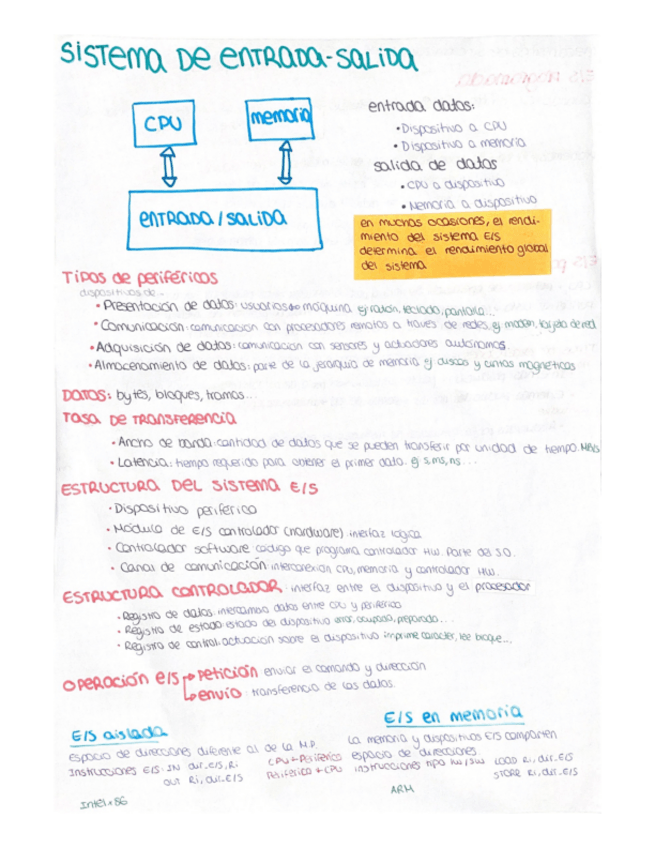 SISTEMA DE ENTRADA-SALIDA
CPU
memoria
ENTRADA / SALIDA
entrada datos:
• Dispositivo a CPU
• Dispositivo a memoria
salida de datos
• CPU a dispositivo
• Memoria a dispositivo
en muchas ocasiones, el rendi-
miento del sistema E/S
determina el rendimiento global
del sistema
Tipos de periféricos
dispositivos de -
• Presentación de datos: usuarios máquina ej ratón, teclado, pantalla...
• Comunicación: comunicación con procesadores remotos a traves de redes, ej modem, tarjeta de red
• Adquisición de datos: comunicación con sensores y actuadores autónomos
• Almacenamiento de datos: parte de la jerarquía de memoria ej discos y cintas magnéticas
DATOS: bytes, bloques, tramas...
TASA DE TRANSFERENCIA
• Ancho de banda: cantidad de datos que se pueden transferir por unidad de tiempo. MB/s
• Latencia: tiempo requerido para obtener el primer dato. ej s, ms, ns...
ESTRUCTURA DEL SISTEMA E/S
• Dispositivo periferico
• Módulo de E/S controlador (hardware): interfaz lógica
• Controlador software: codigo que programa controlador HW. Parte del S.O.
• Canal de comunicación: interconexion CPU, memoria y controlador HW.
ESTRUCTURA CONTROLADOR: interfaz entre el dispositivo y el procesador
• Registro de datos: intercambio datos entre CPU y periférico
• Registro de estado: estado del dispositivo error, ocupado, preparado...
• Registro de control: actuacion sobre el dispositivo imprime caracter, lee bloque...
OPERACIÓN E/S → PETICIÓN enviar el comando y dirección
→ ENVÍO: transferencia de los datos.
E/S aislada
Espacio de direcciones diferente al de la M.P.
Instrucciones E/S: IN dir.E/S, Ri CPU ← Periférico
OUT Ri, dir.E/S Periférico ← CPU
Intel x86
E/S en memoria
La memoria y dispositivos E/S comparten
espacio de direcciones.
instrucciones tipo lw/sw LOAD Ri, dir.E/S
STORE Ri, dir.E/S
ARM